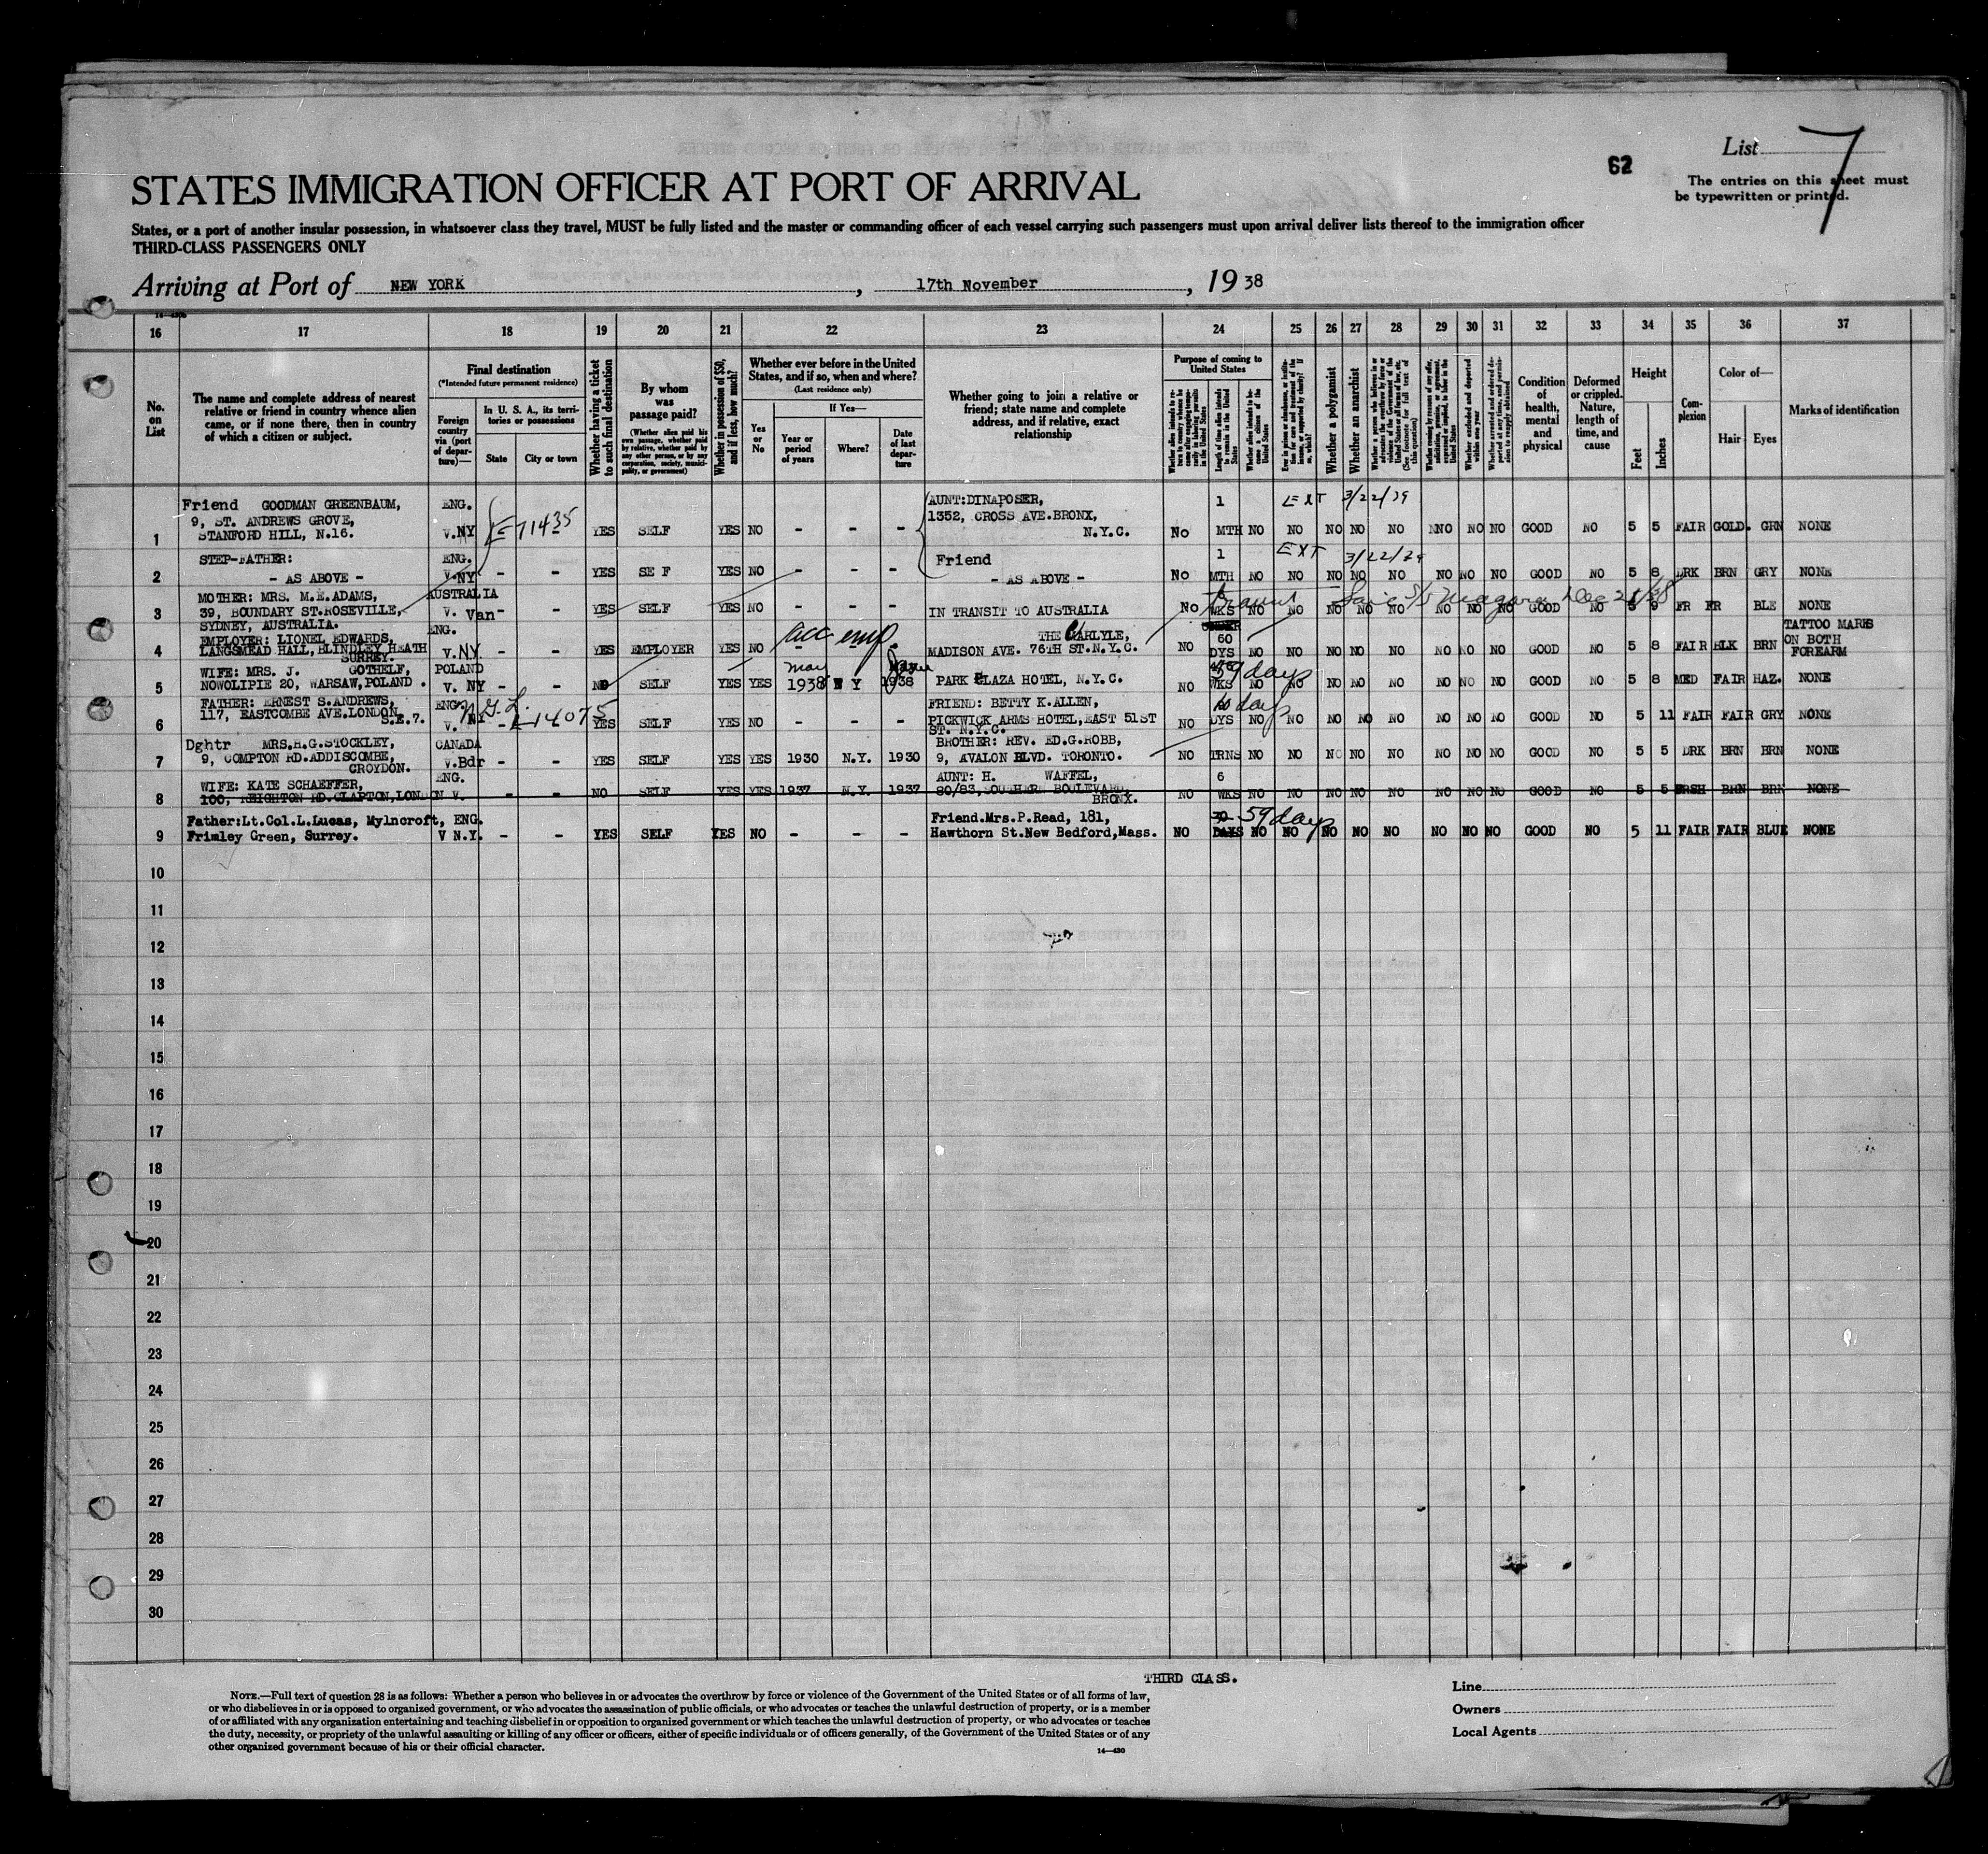 List 7
62
The entries on this sheet must
be typewritten or printed.
STATES IMMIGRATION OFFICER AT PORT OF ARRIVAL
States, or a port of another insular possession, in whatsoever class they travel, MUST be fully listed and the master or commanding officer of each vessel carrying such passengers must upon arrival deliver lists thereof to the immigration officer
THIRD-CLASS PASSENGERS ONLY
Arriving at Port of NEW YORK, 17th November, 1938
16 17 18 19 20 21 22 23 24 25 26 27 28 29 30 31 32 33 34 35 36 37
No. on List
The name and complete address of nearest
relative or friend in country whence alien
came, or if none there, then in country
of which a citizen or subject.
Final destination
(*Intended future permanent residence)
Foreign country via (port of departure)—
In U. S. A., its territories or possessions
State
City or town
Whether having a ticket to such final destination
By whom was passage paid?
(Whether alien paid his own passage, whether paid by relative, whether paid by any other person, or by any corporation, society, municipality, or government)
Whether in possession of $50, and if less, how much?
Whether ever before in the United States, and if so, when and where?
(Last residence only)
Yes or No
If Yes—
Year or period of years
Where?
Date of last departure
Whether going to join a relative or
friend; state name and complete
address, and if relative, exact
relationship
Purpose of coming to United States
Length of time alien intends to remain in the United States
Whether a polygamist
Whether an anarchist
Condition of health, mental and physical
Deformed or crippled. Nature, length of time, and cause
Height
Feet
Inches
Complexion
Color of—
Hair
Eyes
Marks of identification
Friend GOODMAN GREENBAUM, ENG. AUNT:DINAPOSER, 1 EXT 3/22/39
9, ST. ANDREWS GROVE, E-71435 1352, CROSS AVE.BRONX,
1 STANFORD HILL, N.16. V.NY YES SELF YES NO - - - N.Y.C. No MTH NO NO NO NO NO NO NO NO GOOD NO 5 5 FAIR GOLD. GRN NONE
STEP-FATHER: ENG. Friend 1 EXT 3/22/39
2 - AS ABOVE - V.NY - - YES SE F YES NO - - - - AS ABOVE - No MTH NO NO NO NO NO NO NO NO GOOD NO 5 8 DRK BRN GRY NONE
MOTHER: MRS. M.E.ADAMS, AUSTRALIA
3 39, BOUNDARY ST.ROSEVILLE, V. Van - - YES SELF YES NO - - - IN TRANSIT TO AUSTRALIA No WKS NO NO NO NO NO NO NO NO GOOD NO FR FR BLE NONE
SYDNEY, AUSTRALIA.
EMPLOYER: LIONEL EDWARDS, ENG. acc emp THE CARLYLE, 60 TATTOO MARKS
4 LANGSMEAD HALL, BLINDLEY HEATH V.NY - - YES EMPLOYER YES NO - - - MADISON AVE. 76TH ST.N.Y.C. NO DYS NO NO NO NO NO NO NO NO GOOD NO 5 8 FAIR BLK BRN ON BOTH
SURREY. FOREARM
WIFE: MRS. J. GOTHELF, POLAND May 59 days
5 NOWOLIPIE 20, WARSAW,POLAND. V. NY - - NO SELF YES YES 1938 N Y 1938 PARK PLAZA HOTEL, N.Y.C. NO WKS NO NO NO NO NO NO NO NO GOOD NO 5 8 MED FAIR HAZ. NONE
FATHER: ERNEST S.ANDREWS, ENG. FRIEND: BETTY K.ALLEN, days
6 117, EASTCOMBE AVE.LONDON, S.E.7. V. NY - 14075 YES SELF YES NO - - - PICKWICK ARMS HOTEL,EAST 51ST NO DYS NO NO NO NO NO NO NO NO GOOD NO 5 11 FAIR FAIR GRY NONE
ST. N.Y.C.
Dghtr MRS.H.G.STOCKLEY, CANADA BROTHER: REV. ED.G.ROBB,
7 9, COMPTON RD.ADDISCOMBE, V.Bdr - - YES SELF YES YES 1930 N.Y. 1930 9, AVALON BLVD. TORONTO. NO TRNS NO NO NO NO NO NO NO NO GOOD NO 5 5 DRK BRN BRN NONE
CROYDON.
WIFE: KATE SCHAEFFER, ENG. AUNT: H. WAFFEL, 6
8 100, REIGHTON RD.CLAPTON,LONDON V. - - NO SELF YES YES 1937 N.Y. 1937 80/83, SOUTHERN BOULEVARD, NO WKS NO NO NO NO NO NO NO NO GOOD NO 5 5 FRSH BRN BRN NONE
BRONX.
Father:Lt.Col.L.Lucas, Mylncroft, ENG. Friend.Mrs.P.Read, 181, 30 59 days
9 Frimley Green, Surrey. V N.Y. - - YES SELF YES NO - - - Hawthorn St.New Bedford,Mass. NO DAYS NO NO NO NO NO NO NO NO GOOD NO 5 11 FAIR FAIR BLUE NONE
10
11
12
13
14
15
16
17
18
19
20
21
22
23
24
25
26
27
28
29
30
THIRD CLASS.
NOTE.—Full text of question 28 is as follows: Whether a person who believes in or advocates the overthrow by force or violence of the Government of the United States or of all forms of law,
or who disbelieves in or is opposed to organized government, or who advocates the assassination of public officials, or who advocates or teaches the unlawful destruction of property, or is a member
of or affiliated with any organization entertaining and teaching disbelief in or opposition to organized government or which teaches the unlawful destruction of property, or who advocates or teaches
the duty, necessity, or propriety of the unlawful assaulting or killing of any officer or officers, either of specific individuals or of officers generally, of the Government of the United States or of any
other organized government because of his or their official character.
14—430
Line
Owners
Local Agents